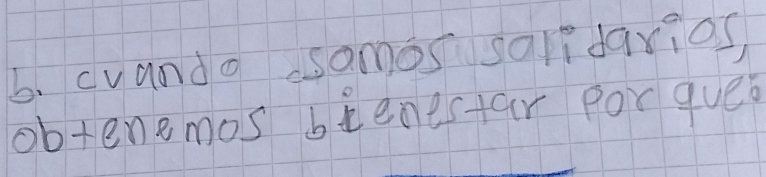 b. cuando somos salidarios,
obtenemos bienestar por que: